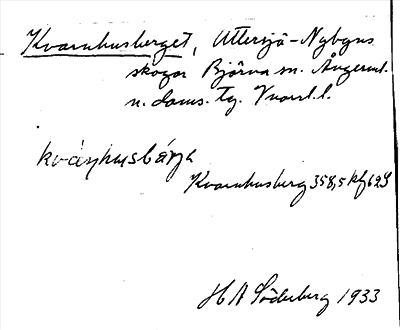 Kvarnhusberget, Uttersjö-Nybygns
skogar Björna sn. Ångerml.
n. doms. tg. Vnorrl. l.
kvàṇhusbárja
Kvarnhusberg 358,5 kf 62S
H A Söderberg 1933